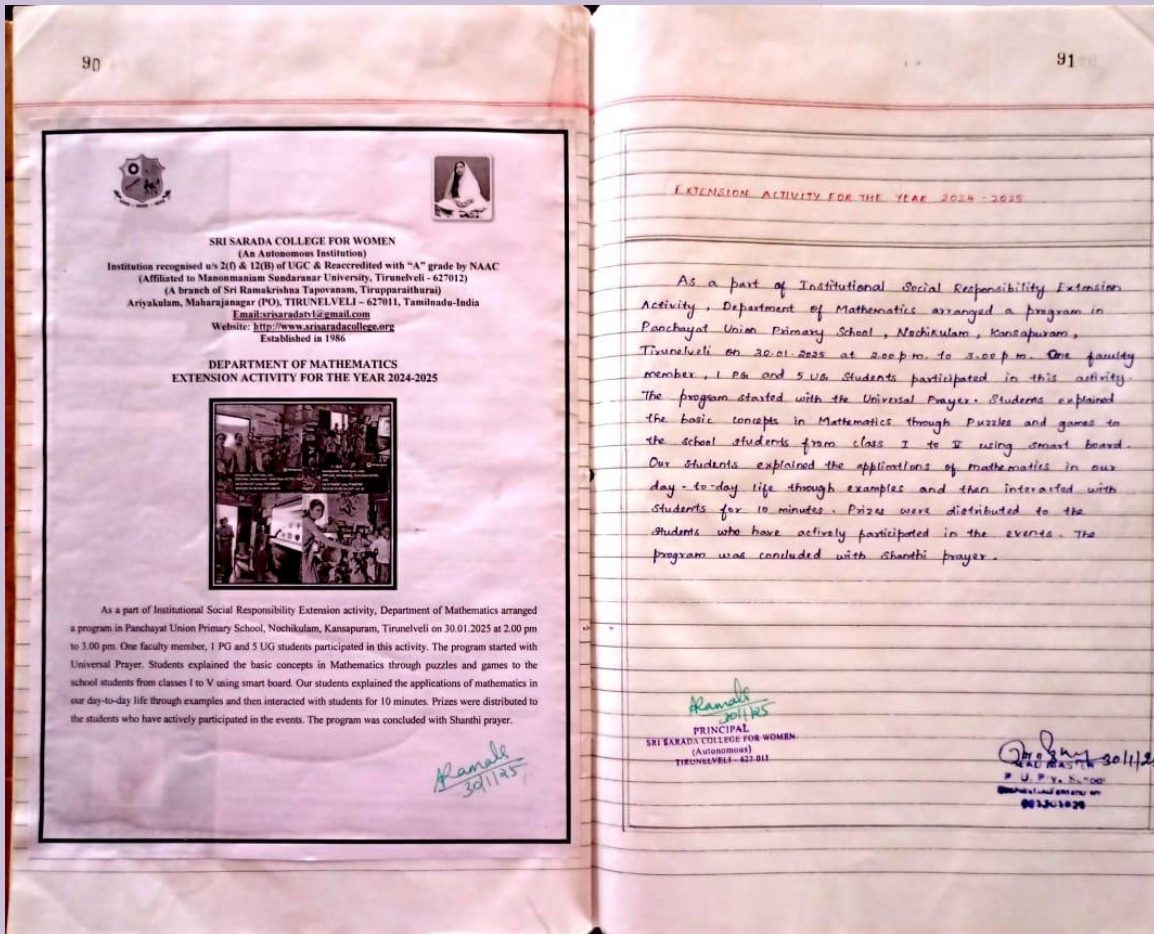 90
SRI SARADA COLLEGE FOR WOMEN
(An Autonomous Institution)
Institution recognised u/s 2(f) & 12(B) of UGC & Reaccredited with “A” grade by NAAC
(Affiliated to Manonmaniam Sundaranar University, Tirunelveli - 627012)
(A branch of Sri Ramakrishna Tapovanam, Tirupparaithurai)
Ariyakulam, Maharajanagar (PO), TIRUNELVELI – 627011, Tamilnadu-India
Email:srisaradatvl@gmail.com
Website: http://www.srisaradacollege.org
Established in 1986
DEPARTMENT OF MATHEMATICS
EXTENSION ACTIVITY FOR THE YEAR 2024-2025
As a part of Institutional Social Responsibility Extension activity, Department of Mathematics arranged
a program in Panchayat Union Primary School, Nochikulam, Kansapuram, Tirunelveli on 30.01.2025 at 2.00 pm
to 3.00 pm. One faculty member, 1 PG and 5 UG students participated in this activity. The program started with
Universal Prayer. Students explained the basic concepts in Mathematics through puzzles and games to the
school students from classes I to V using smart board. Our students explained the applications of mathematics in
our day-to-day life through examples and then interacted with students for 10 minutes. Prizes were distributed to
the students who have actively participated in the events. The program was concluded with Shanthi prayer.
30/1/25
91
EXTENSION ACTIVITY FOR THE YEAR 2024 - 2025
As a part of Institutional Social Responsibility Extension
Activity, Department of Mathematics arranged a program in
Panchayat Union Primary School, Nochikulam, Kansapuram,
Tirunelveli on 30.01.2025 at 2.00 p.m. to 3.00 p.m. One faculty
member, 1 PG and 5 UG Students participated in this activity.
The program started with the Universal Prayer. Students explained
the basic concepts in Mathematics through Puzzles and games to
the school students from class I to V using smart board.
Our students explained the applications of mathematics in our
day-to-day life through examples and then interacted with
students for 10 minutes. Prizes were distributed to the
students who have actively participated in the events. The
program was concluded with Shanthi prayer.
30/1/25
PRINCIPAL
SRI SARADA COLLEGE FOR WOMEN
(Autonomous)
TIRUNELVELI - 627 011
30/1/25